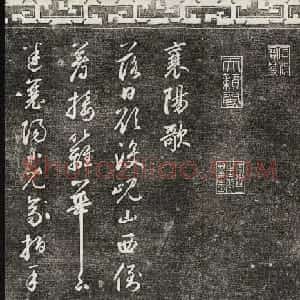 襄陽歌
落日欲沒峴山西倒
着接䍦華下
迷襄陽兒家拍手
shufaziliao.com